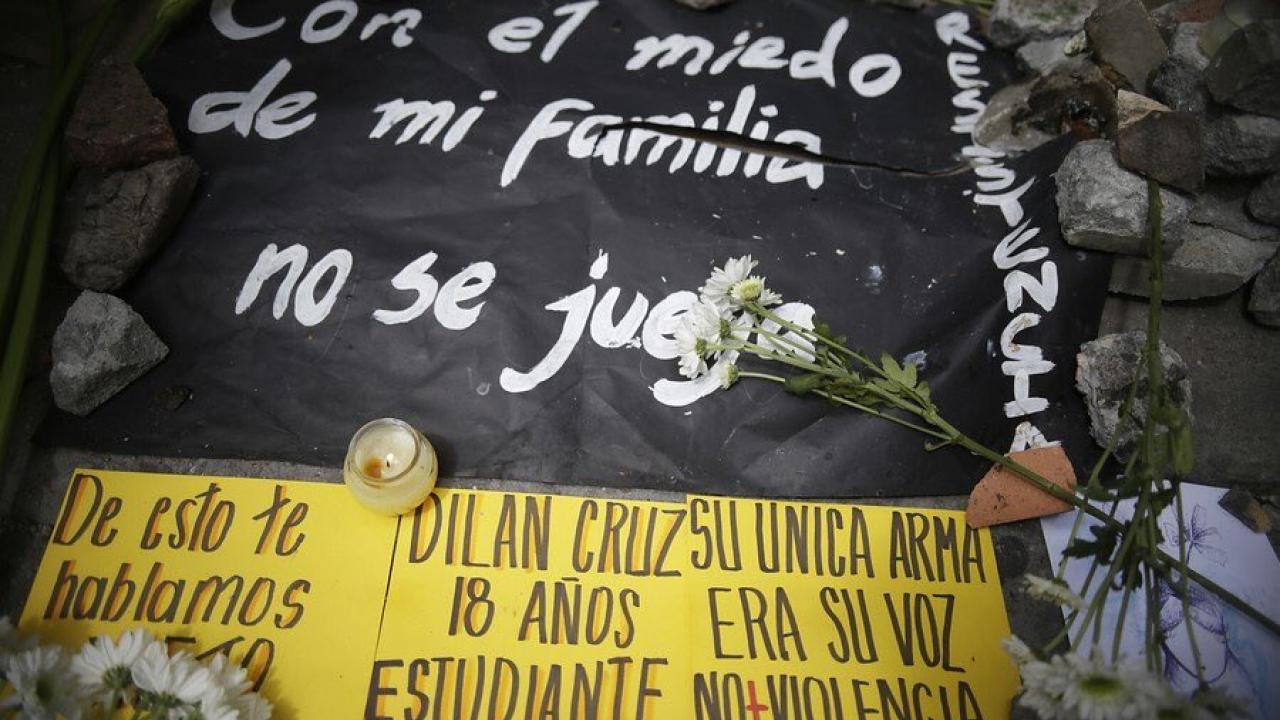 Con el miedo
de mi familia
no se juega
RESISTENCIA
De esto te
hablamos
DILAN CRUZ
18 AÑOS
ESTUDIANTE
SU UNICA ARMA
ERA SU VOZ
NO+VIOLENCIA